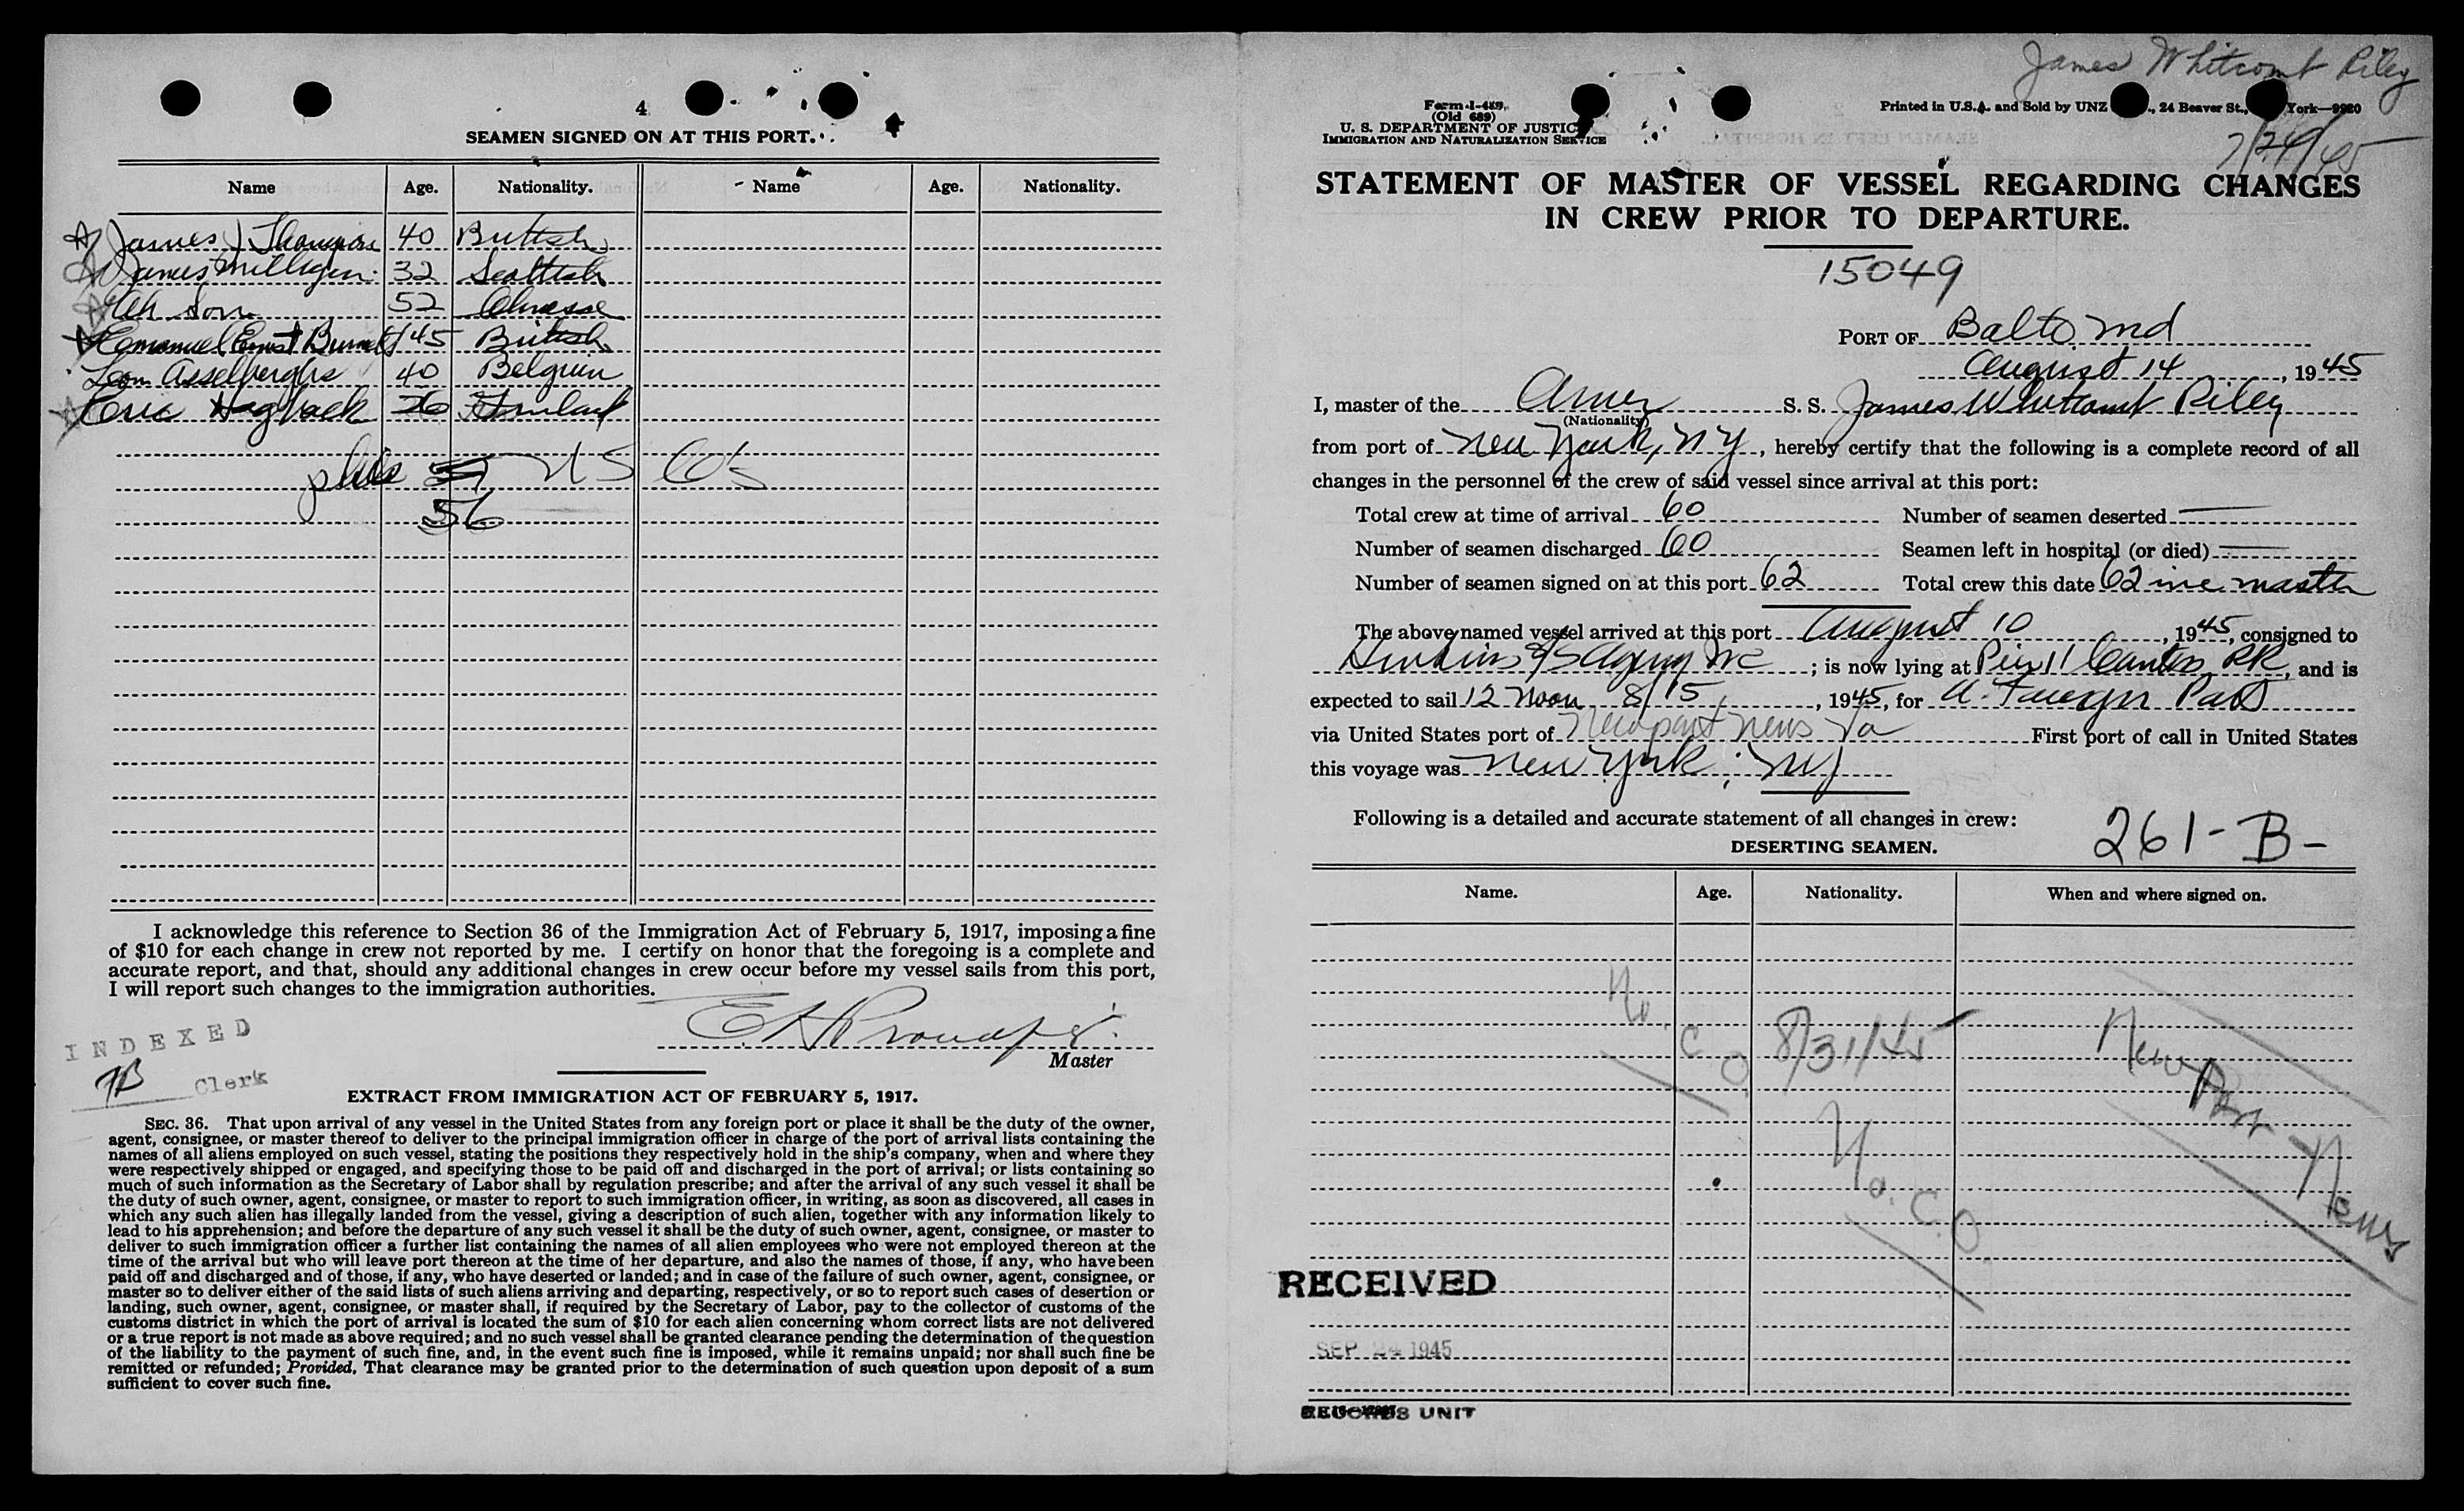 4
SEAMEN SIGNED ON AT THIS PORT.
Name Age. Nationality. Name Age. Nationality.
James J Thompson 40 British
James Milligan 32 Scottish
52 Chinese
Emanuel Ernst 45 British
Leon Asselberghs 40 Belguin
Eric 26
plus US Co's
56
I acknowledge this reference to Section 36 of the Immigration Act of February 5, 1917, imposing a fine
of $10 for each change in crew not reported by me. I certify on honor that the foregoing is a complete and
accurate report, and that, should any additional changes in crew occur before my vessel sails from this port,
I will report such changes to the immigration authorities.
Master
INDEXED
Clerk
EXTRACT FROM IMMIGRATION ACT OF FEBRUARY 5, 1917.
SEC. 36. That upon arrival of any vessel in the United States from any foreign port or place it shall be the duty of the owner,
agent, consignee, or master thereof to deliver to the principal immigration officer in charge of the port of arrival lists containing the
names of all aliens employed on such vessel, stating the positions they respectively hold in the ship's company, when and where they
were respectively shipped or engaged, and specifying those to be paid off and discharged in the port of arrival; or lists containing so
much of such information as the Secretary of Labor shall by regulation prescribe; and after the arrival of any such vessel it shall be
the duty of such owner, agent, consignee, or master to report to such immigration officer, in writing, as soon as discovered, all cases in
which any such alien has illegally landed from the vessel, giving a description of such alien, together with any information likely to
lead to his apprehension; and before the departure of any such vessel it shall be the duty of such owner, agent, consignee, or master to
deliver to such immigration officer a further list containing the names of all alien employees who were not employed thereon at the
time of the arrival but who will leave port thereon at the time of her departure, and also the names of those, if any, who have been
paid off and discharged and of those, if any, who have deserted or landed; and in case of the failure of such owner, agent, consignee, or
master so to deliver either of the said lists of such aliens arriving and departing, respectively, or so to report such cases of desertion or
landing, such owner, agent, consignee, or master shall, if required by the Secretary of Labor, pay to the collector of customs of the
customs district in which the port of arrival is located the sum of $10 for each alien concerning whom correct lists are not delivered
or a true report is not made as above required; and no such vessel shall be granted clearance pending the determination of the question
of the liability to the payment of such fine, and, in the event such fine is imposed, while it remains unpaid; nor shall such fine be
remitted or refunded; Provided, That clearance may be granted prior to the determination of such question upon deposit of a sum
sufficient to cover such fine.
James Whitcomb Riley
7/24/45
Form I-489
(Old 689)
U. S. DEPARTMENT OF JUSTICE
IMMIGRATION AND NATURALIZATION SERVICE
Printed in U.S.A. and Sold by UNZ ., 24 Beaver St., York—9920
STATEMENT OF MASTER OF VESSEL REGARDING CHANGES
IN CREW PRIOR TO DEPARTURE.
15049
PORT OF Balto Md
August 14, 1945
I, master of the Amer S. S. James Whitcomb Riley
(Nationality)
from port of New York, NY, hereby certify that the following is a complete record of all
changes in the personnel of the crew of said vessel since arrival at this port:
Total crew at time of arrival 60 Number of seamen deserted —
Number of seamen discharged 60 Seamen left in hospital (or died) —
Number of seamen signed on at this port 62 Total crew this date 62 inc master
The above named vessel arrived at this port August 10, 1945, consigned to
Inc; is now lying at Pier 11 Canton RR, and is
expected to sail 12 Noon 8/15, 1945, for A. Foreign Port
via United States port of Newport News Va First port of call in United States
this voyage was New York, NY
Following is a detailed and accurate statement of all changes in crew:
261-B-
DESERTING SEAMEN.
Name. Age. Nationality. When and where signed on.
No. C.O. 8/31/45 Newport News
No. C.O.
RECEIVED
SEP 24 1945
RECORDS UNIT